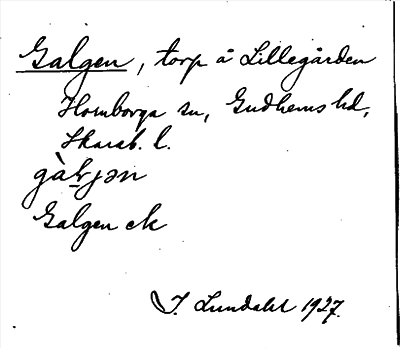 Galgen, torp å Lillegården
Hornborga sn, Gudhems hd,
Skarab. l.
gàl̥jən
Galgen ek
I. Lundahl 1927.